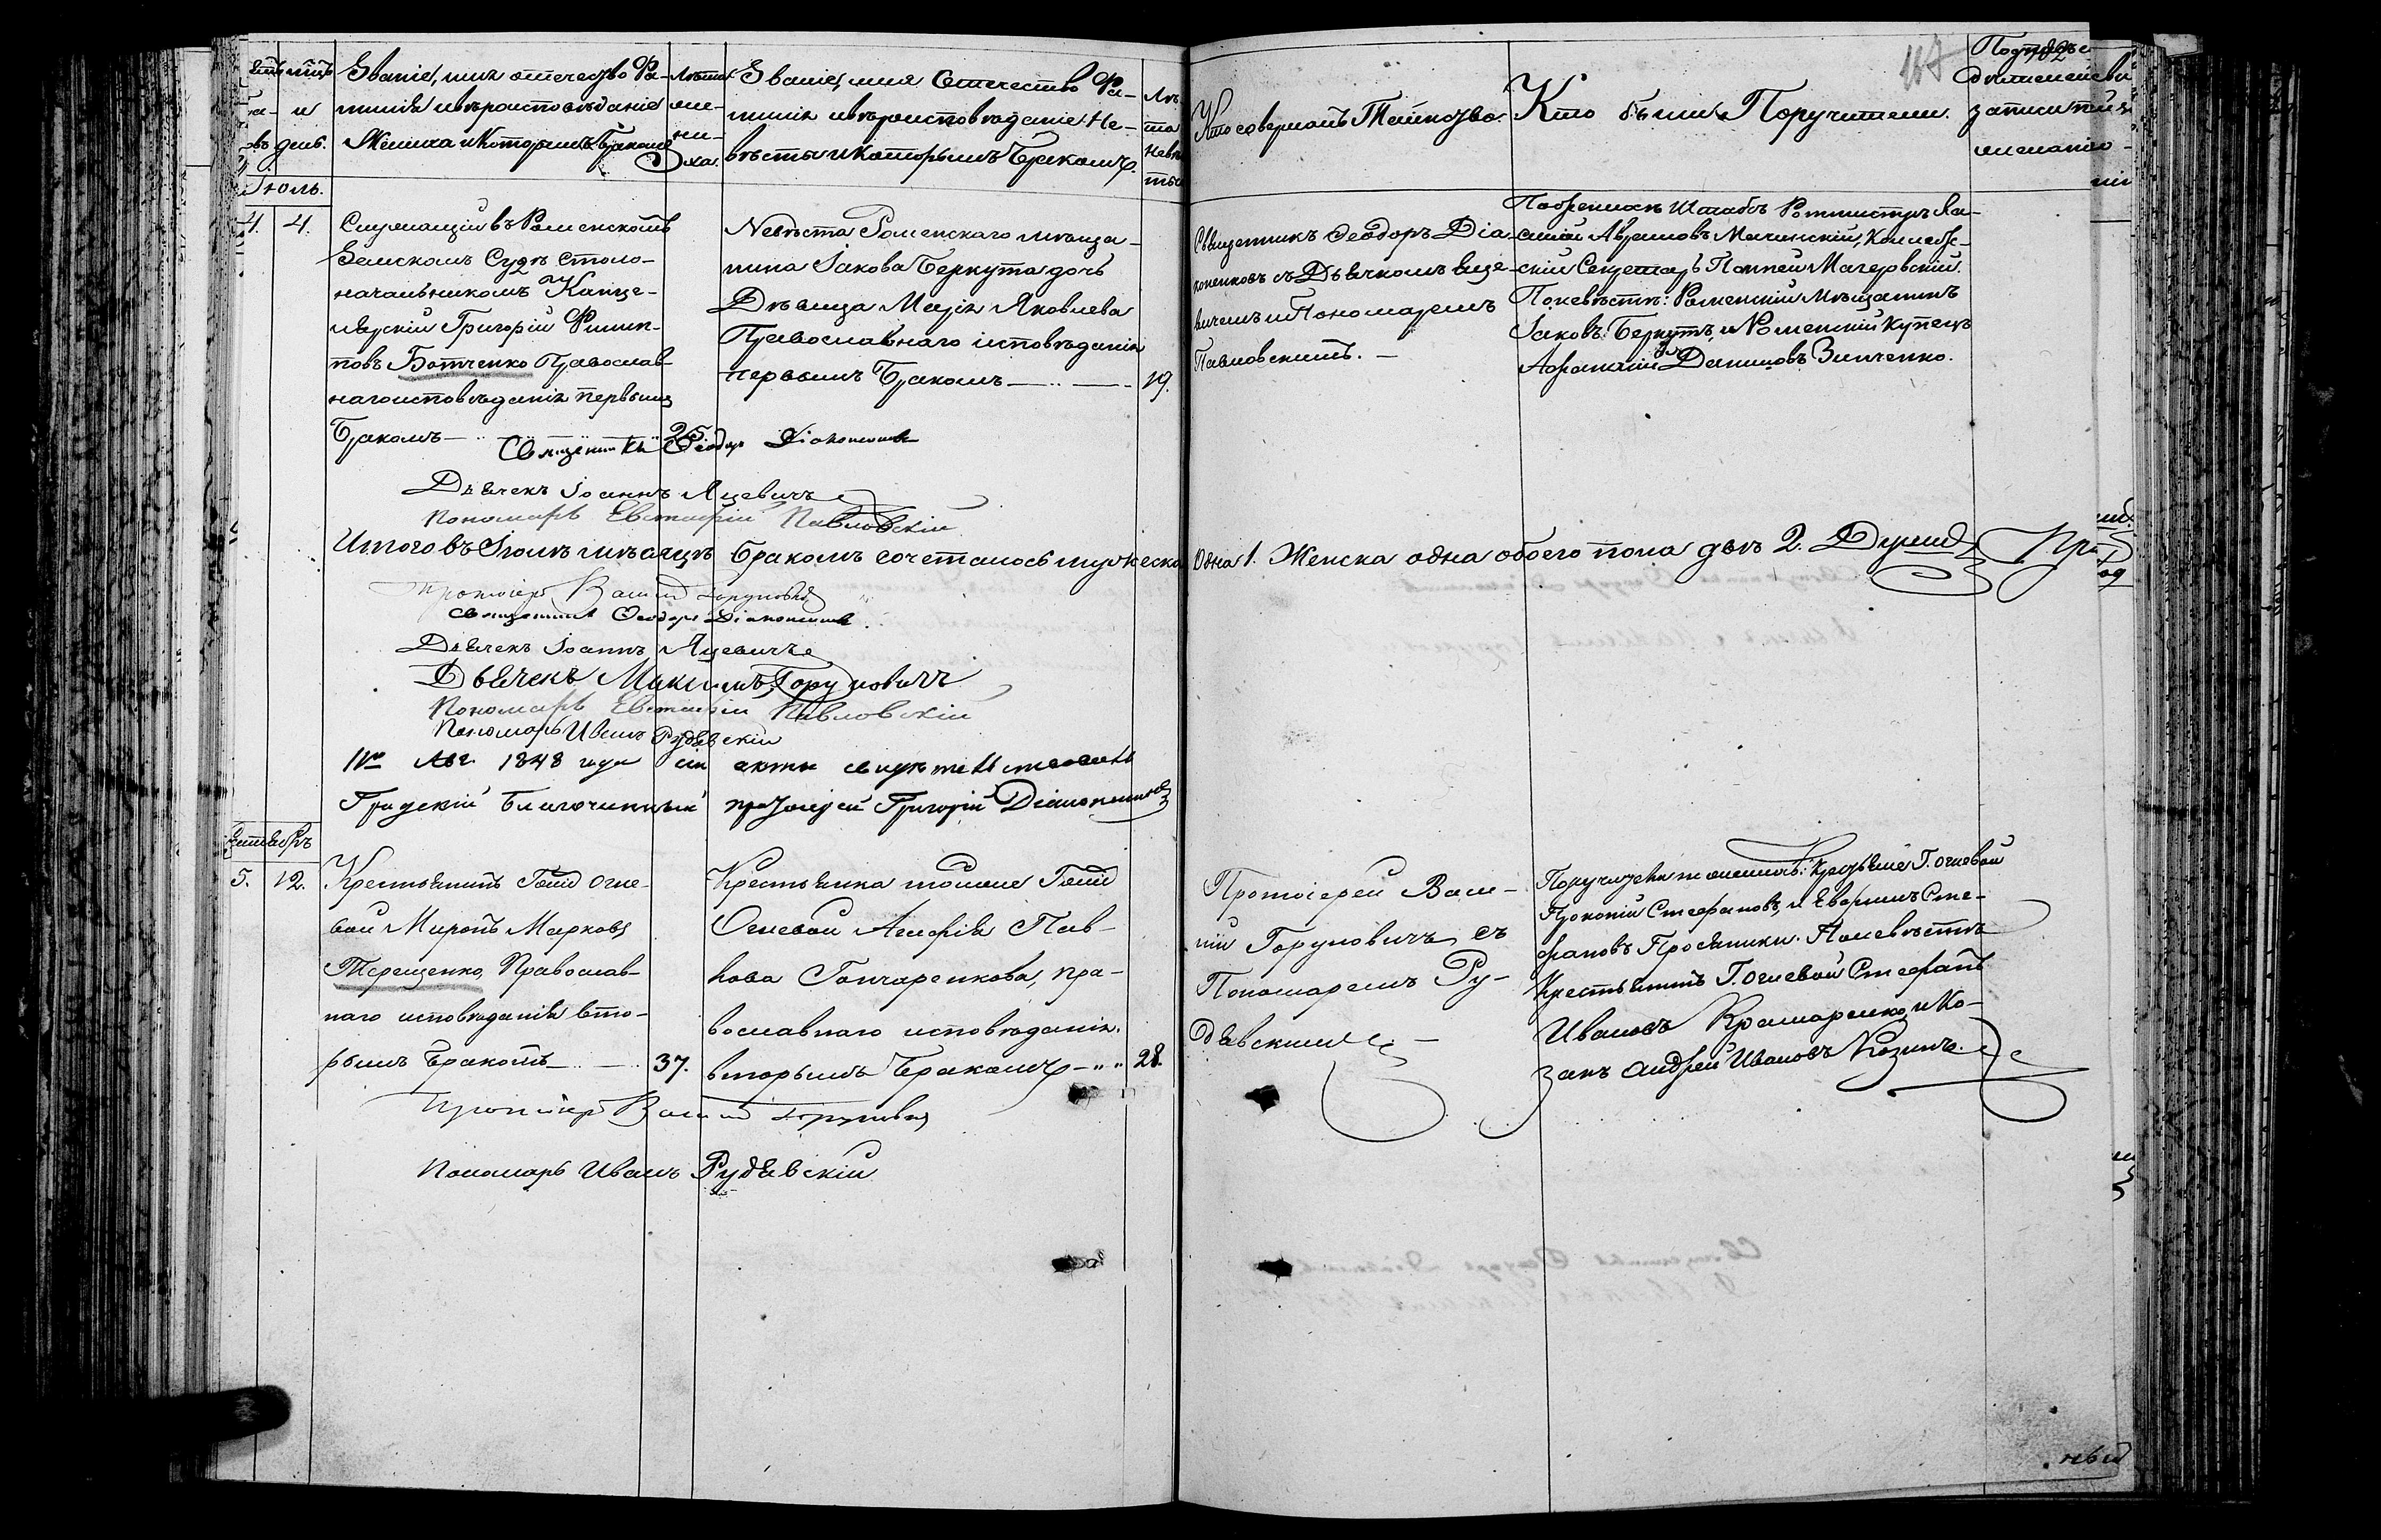 Званіе, имя отечество Фа-
милія и вѣроисповѣданіе
Жениха и Которымъ Бракомъ
Лѣта
же-
ни-
ха.
Званіе, имя Отечество Фа-
милія и вѣроисповѣданіе Не-
вѣсты и которымъ Бракомъ.
Лѣ
та
Невѣ
ты
Кто совершалъ Таинство.
Кто были Поручители.
117
182
записи
Іюль.
4. 4.
Служащій въ Роменскомъ
Земскомъ Судѣ Столо-
начальникомъ Канце-
лярскій Григорій Филип-
повъ Ботченко Православ-
наго исповѣданія первымъ
Бракомъ 25
Невѣста Роменскаго мѣща-
нина Іакова Беркута дочь
Дѣвица Марія Яковлева
Православнаго исповѣданія
первымъ Бракомъ 19.
Священникъ Ѳеодоръ Діа-
коненковъ съ Дьячкомъ Яце-
вичемъ и Пономаремъ
Павловскимъ.
По женихѣ Штабсъ Ротмистръ
Коллеж-
скій Секретарь
По невѣстѣ: Роменскій Мѣщанинъ
Іаковъ Беркутъ, и Роменскій Купецъ
Даниловъ Зинченко.
Священникъ Ѳеодоръ Діаконенковъ
Дьячекъ Іоаннъ Яцевичъ
Пономарь Евстафій Павловскій
Итого въ Іюлѣ мѣсяцѣ бракомъ сочеталось мужеска одна 1. Женска одна обоего пола двѣ 2. Души
Протоіерей Василій Горуновичъ
Священникъ Ѳеодоръ Діаконенковъ
Дьячекъ Іоаннъ Яцевичъ
Дьячекъ Максимъ Горуновичъ
Пономарь Евстафій Павловскій
Пономарь Иванъ Рудѣевскій
Авг. 1848 года сіи акты свидѣтельствовалъ
Градскій Благочинный протоіерей Григорій Діаконенковъ
Сентябрь
5. 12.
Крестьянинъ Гжи Огне-
вой Миронъ Марковъ
Терещенко, Православ-
наго исповѣданія вто-
рымъ бракомъ 37.
Крестьянка тойже Гжи
Огневой Агафія Пав-
лова Гончаренкова, пра-
вославнаго исповѣданія.
вторымъ Бракомъ 28.
Протоіерей Васи-
лій Горуновичъ съ
Пономаремъ Ру-
дѣевскимъ
Г. Огневой
Прокопій Стефановъ, и Стe-
фановъ Просяники. По невѣстѣ
Крестьянинъ Г. Огневой Стефанъ
Ивановъ Крамаренко, и Ко-
закъ Андрей Ивановъ Козинъ.
Протоіерей Василій Горуновичъ
Пономарь Иванъ Рудѣевскій